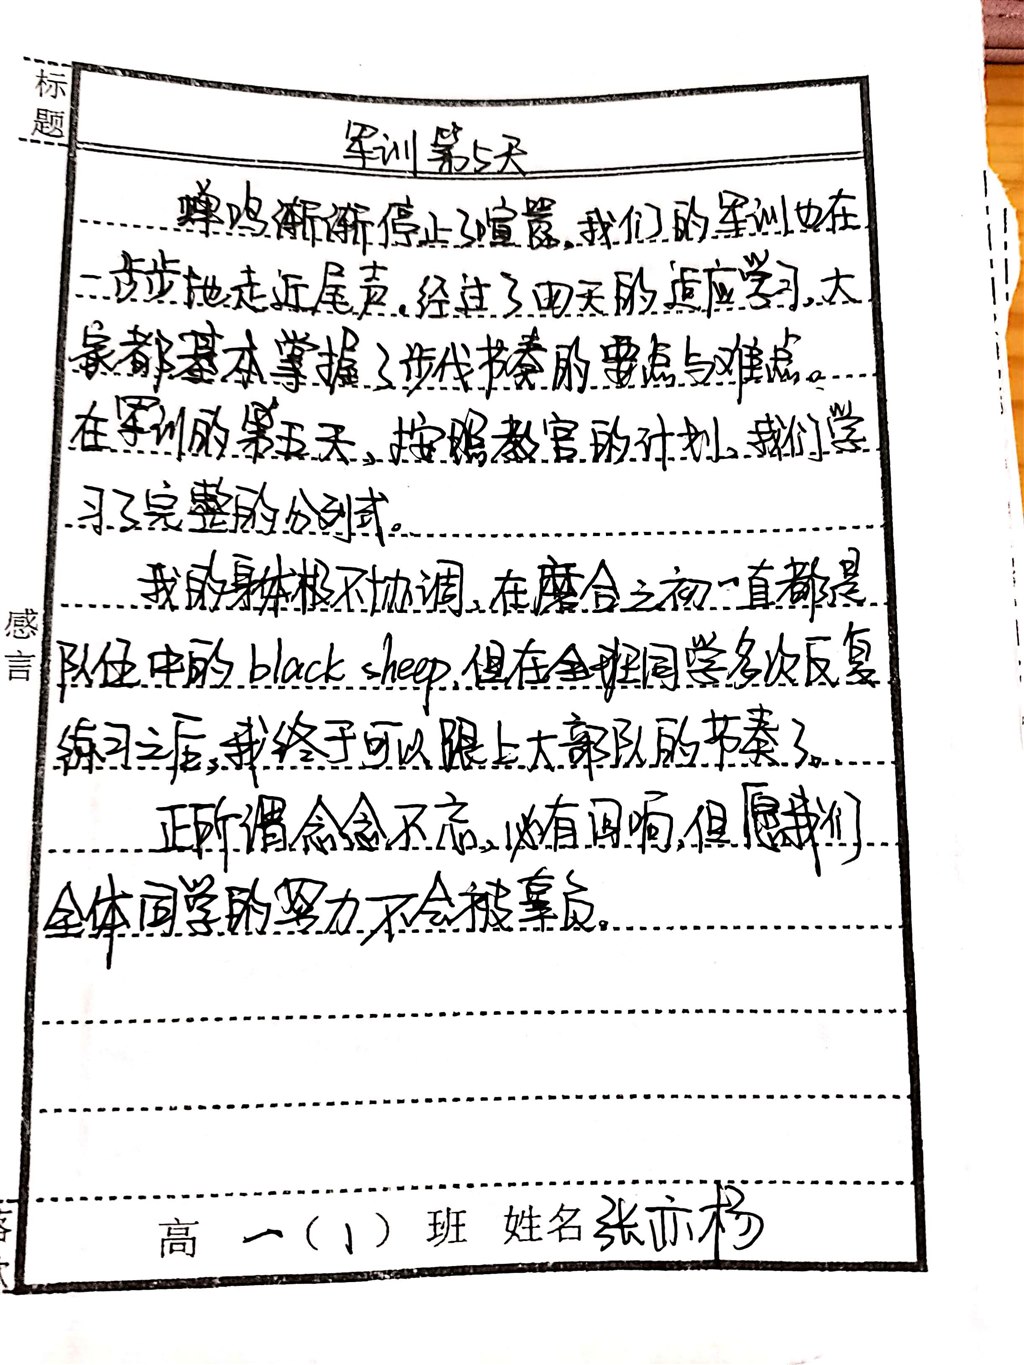 标题
军训第5天
蝉鸣渐渐停止了喧嚣,我们的军训也在
一步步地走近尾声.经过了四天的适应学习,大
家都基本掌握了步伐节奏的要点与难点。
在军训的第五天,按照教官的计划,我们学
习了完整的分列式。
我的身体极不协调,在磨合之初一直都是
队伍中的black sheep,但在全班同学多次反复
练习之后,我终于可以跟上大部队的节奏了。
感言
正所谓念念不忘,必有回响,但愿我们
全体同学的努力不会被辜负。
高一(1)班 姓名张亦杨